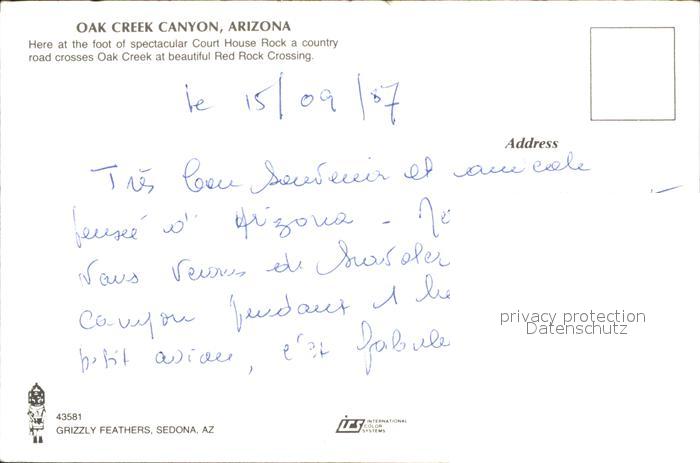 OAK CREEK CANYON, ARIZONA
Here at the foot of spectacular Court House Rock a country
road crosses Oak Creek at beautiful Red Rock Crossing.
le 15/09/87
Address
Très bon souvenir et amicale
pensée d'Arizona -
Nous venons de survoler
canyon pendant 1 he
petit avion, c'est fabule
privacy protection
Datenschutz
43581
GRIZZLY FEATHERS, SEDONA, AZ
ICS INTERNATIONAL
COLOR
SYSTEMS